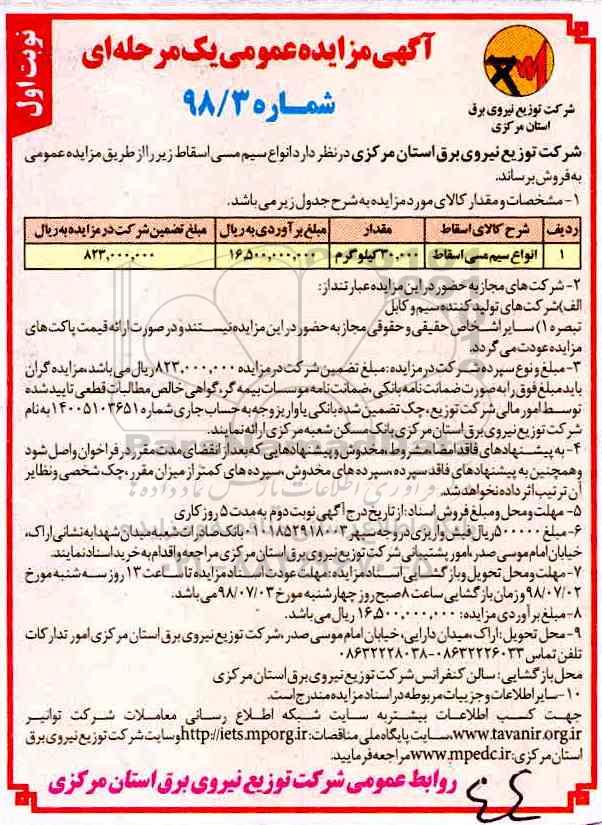 نوبت اول
آگهی مزایده عمومی یک مرحله‌ای
شماره ۹۸/۳
شرکت توزیع نیروی برق
استان مرکزی
شرکت توزیع نیروی برق استان مرکزی در نظر دارد انواع سیم مسی اسقاط زیر را از طریق مزایده عمومی
به فروش برساند.
۱- مشخصات و مقدار کالای مورد مزایده به شرح جدول زیر می باشد.
ردیف شرح کالای اسقاط مقدار مبلغ برآوردی به ریال مبلغ تضمین شرکت در مزایده به ریال
۱ انواع سیم مسی اسقاط ۳۰,۰۰۰ کیلوگرم ۱۶,۵۰۰,۰۰۰,۰۰۰ ۸۲۳,۰۰۰,۰۰۰
۲- شرکت های مجاز به حضور در این مزایده عبارتند از:
الف) شرکت های تولید کننده سیم و کابل
تبصره ۱) سایر اشخاص حقیقی و حقوقی مجاز به حضور در این مزایده نیستند و در صورت ارائه قیمت پاکت های
مزایده عودت می گردد.
۳- مبلغ و نوع سپرده شرکت در مزایده: مبلغ تضمین شرکت در مزایده ۸۲۳,۰۰۰,۰۰۰ ریال می باشد، مزایده گران
باید مبلغ فوق را به صورت ضمانت نامه بانکی، ضمانت نامه موسسات بیمه گر، گواهی خالص مطالبات قطعی تایید شده
توسط امور مالی شرکت توزیع، چک تضمین شده بانکی یا واریز وجه به حساب جاری شماره ۱۴۰۰۵۱۰۳۶۵۱ به نام
شرکت توزیع نیروی برق استان مرکزی بانک مسکن شعبه مرکزی ارائه نمایند.
۴- به پیشنهادهای فاقد امضا، مشروط، مخدوش و پیشنهادهایی که بعد از انقضای مدت مقرر در فراخوان واصل شود
و همچنین به پیشنهادهای فاقد سپرده، سپرده های مخدوش، سپرده های کمتر از میزان مقرر، چک شخصی و نظایر
آن ترتیب اثر داده نخواهد شد.
۵- مهلت و محل و مبلغ فروش اسناد: از تاریخ درج آگهی نوبت دوم به مدت ۵ روز کاری
۶- مبلغ ۵۰۰۰۰۰ ریال فیش واریزی در وجه سپهر ۰۱۰۱۸۵۲۹۱۸۰۰۳ بانک صادرات شعبه میدان شهدا به نشانی اراک،
خیابان امام موسی صدر، امور پشتیبانی شرکت توزیع نیروی برق استان مرکزی مراجعه و اقدام به خرید اسناد نمایند.
۷- مهلت و محل تحویل و بازگشایی اسناد مزایده: مهلت عودت اسناد مزایده تا ساعت ۱۳ روز سه شنبه مورخ
۹۸/۰۷/۰۲ و زمان بازگشایی ساعت ۸ صبح روز چهارشنبه مورخ ۹۸/۰۷/۰۳ می باشد.
۸- مبلغ برآوردی مزایده: ۱۶,۵۰۰,۰۰۰,۰۰۰ ریال می باشد.
۹- محل تحویل: اراک، میدان دارایی، خیابان امام موسی صدر، شرکت توزیع نیروی برق استان مرکزی امور تدارکات
تلفن تماس ۰۸۶۳۲۲۲۶۰۳۳-۰۸۶۳۲۲۲۸۰۳۸
محل بازگشایی: سالن کنفرانس شرکت توزیع نیروی برق استان مرکزی
۱۰- سایر اطلاعات و جزییات مربوطه در اسناد مزایده مندرج است.
جهت کسب اطلاعات بیشتر به سایت شبکه اطلاع رسانی معاملات شرکت توانیر
www.tavanir.org.ir، سایت پایگاه ملی مناقصات: http://iets.mporg.ir و سایت شرکت توزیع نیروی برق
استان مرکزی: www.mpedc.ir مراجعه فرمایید.
روابط عمومی شرکت توزیع نیروی برق استان مرکزی